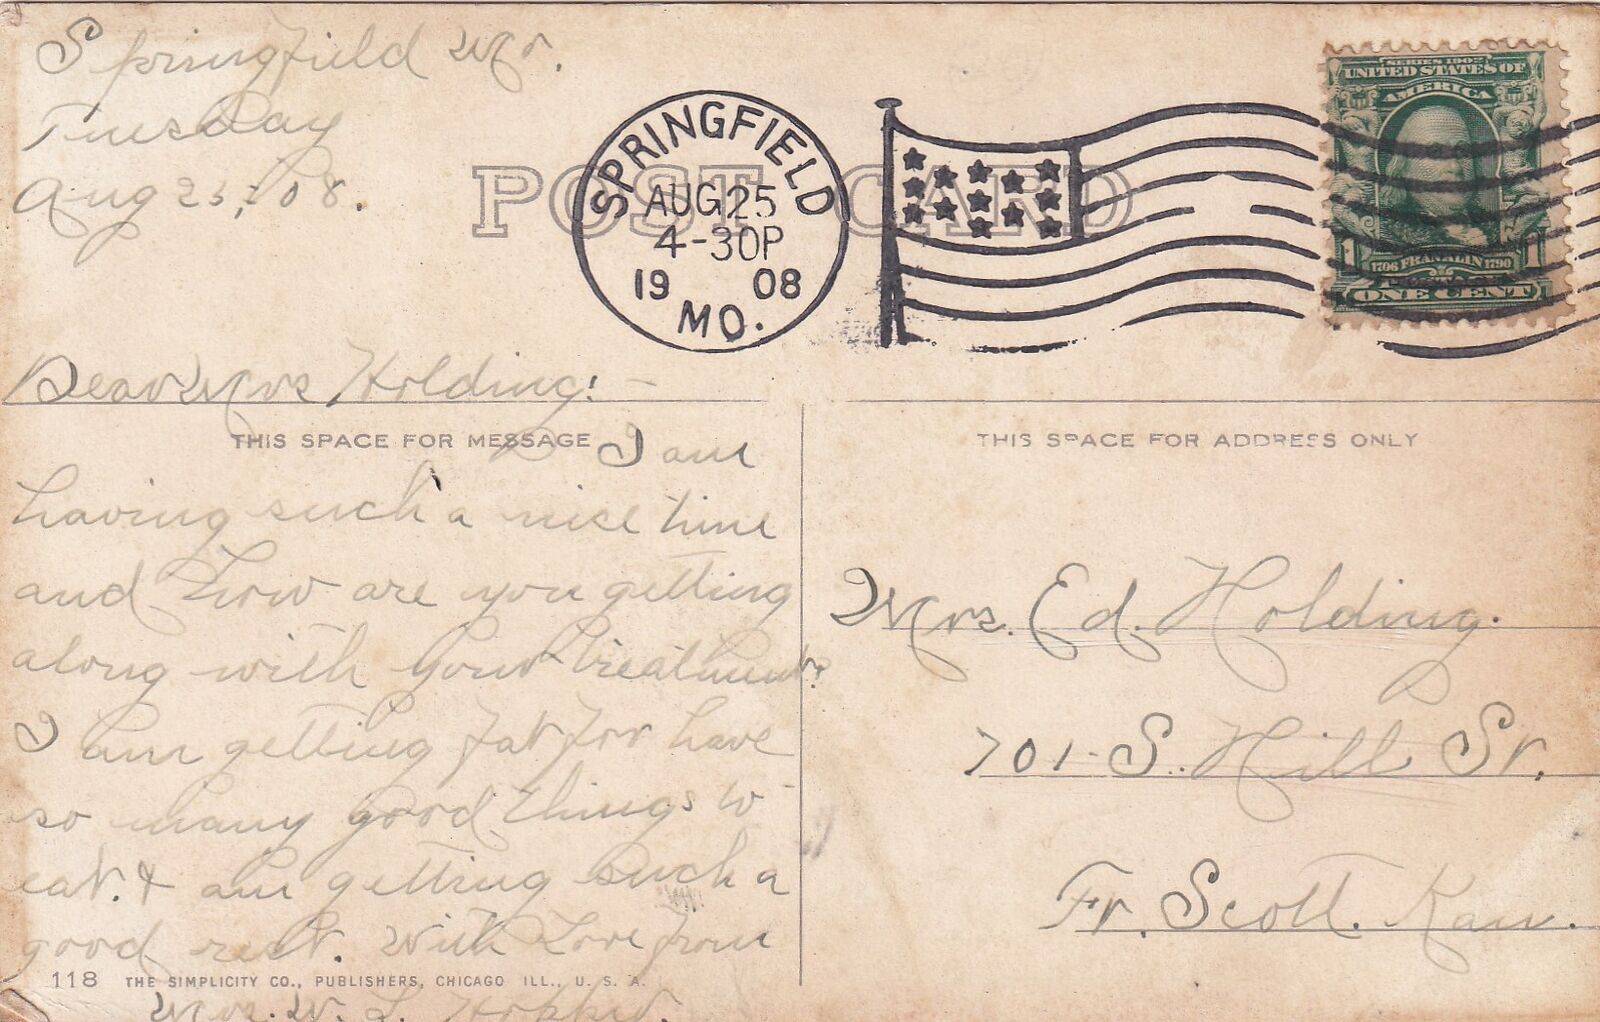 Springfield Mo.
Tuesday
Aug 25, '08.
POST CARD
SPRINGFIELD
AUG 25
4-30P
19 08
MO.
SERIES 1902
UNITED STATES OF
AMERICA
1 1706 FRANKLIN 1790 1
ONE CENT
Dear Mrs Holding: -
THIS SPACE FOR MESSAGE
I am
having such a nice time
and how are you getting
along with your treatment?
I am getting fat for have
so many good things to
eat. & am getting such a
good rest. With Love from
Mrs. W. L.
118 THE SIMPLICITY CO., PUBLISHERS, CHICAGO ILL., U. S. A.
THIS SPACE FOR ADDRESS ONLY
Mrs. Ed. Holding.
701 - S. Hill St.
Ft. Scott. Kan.